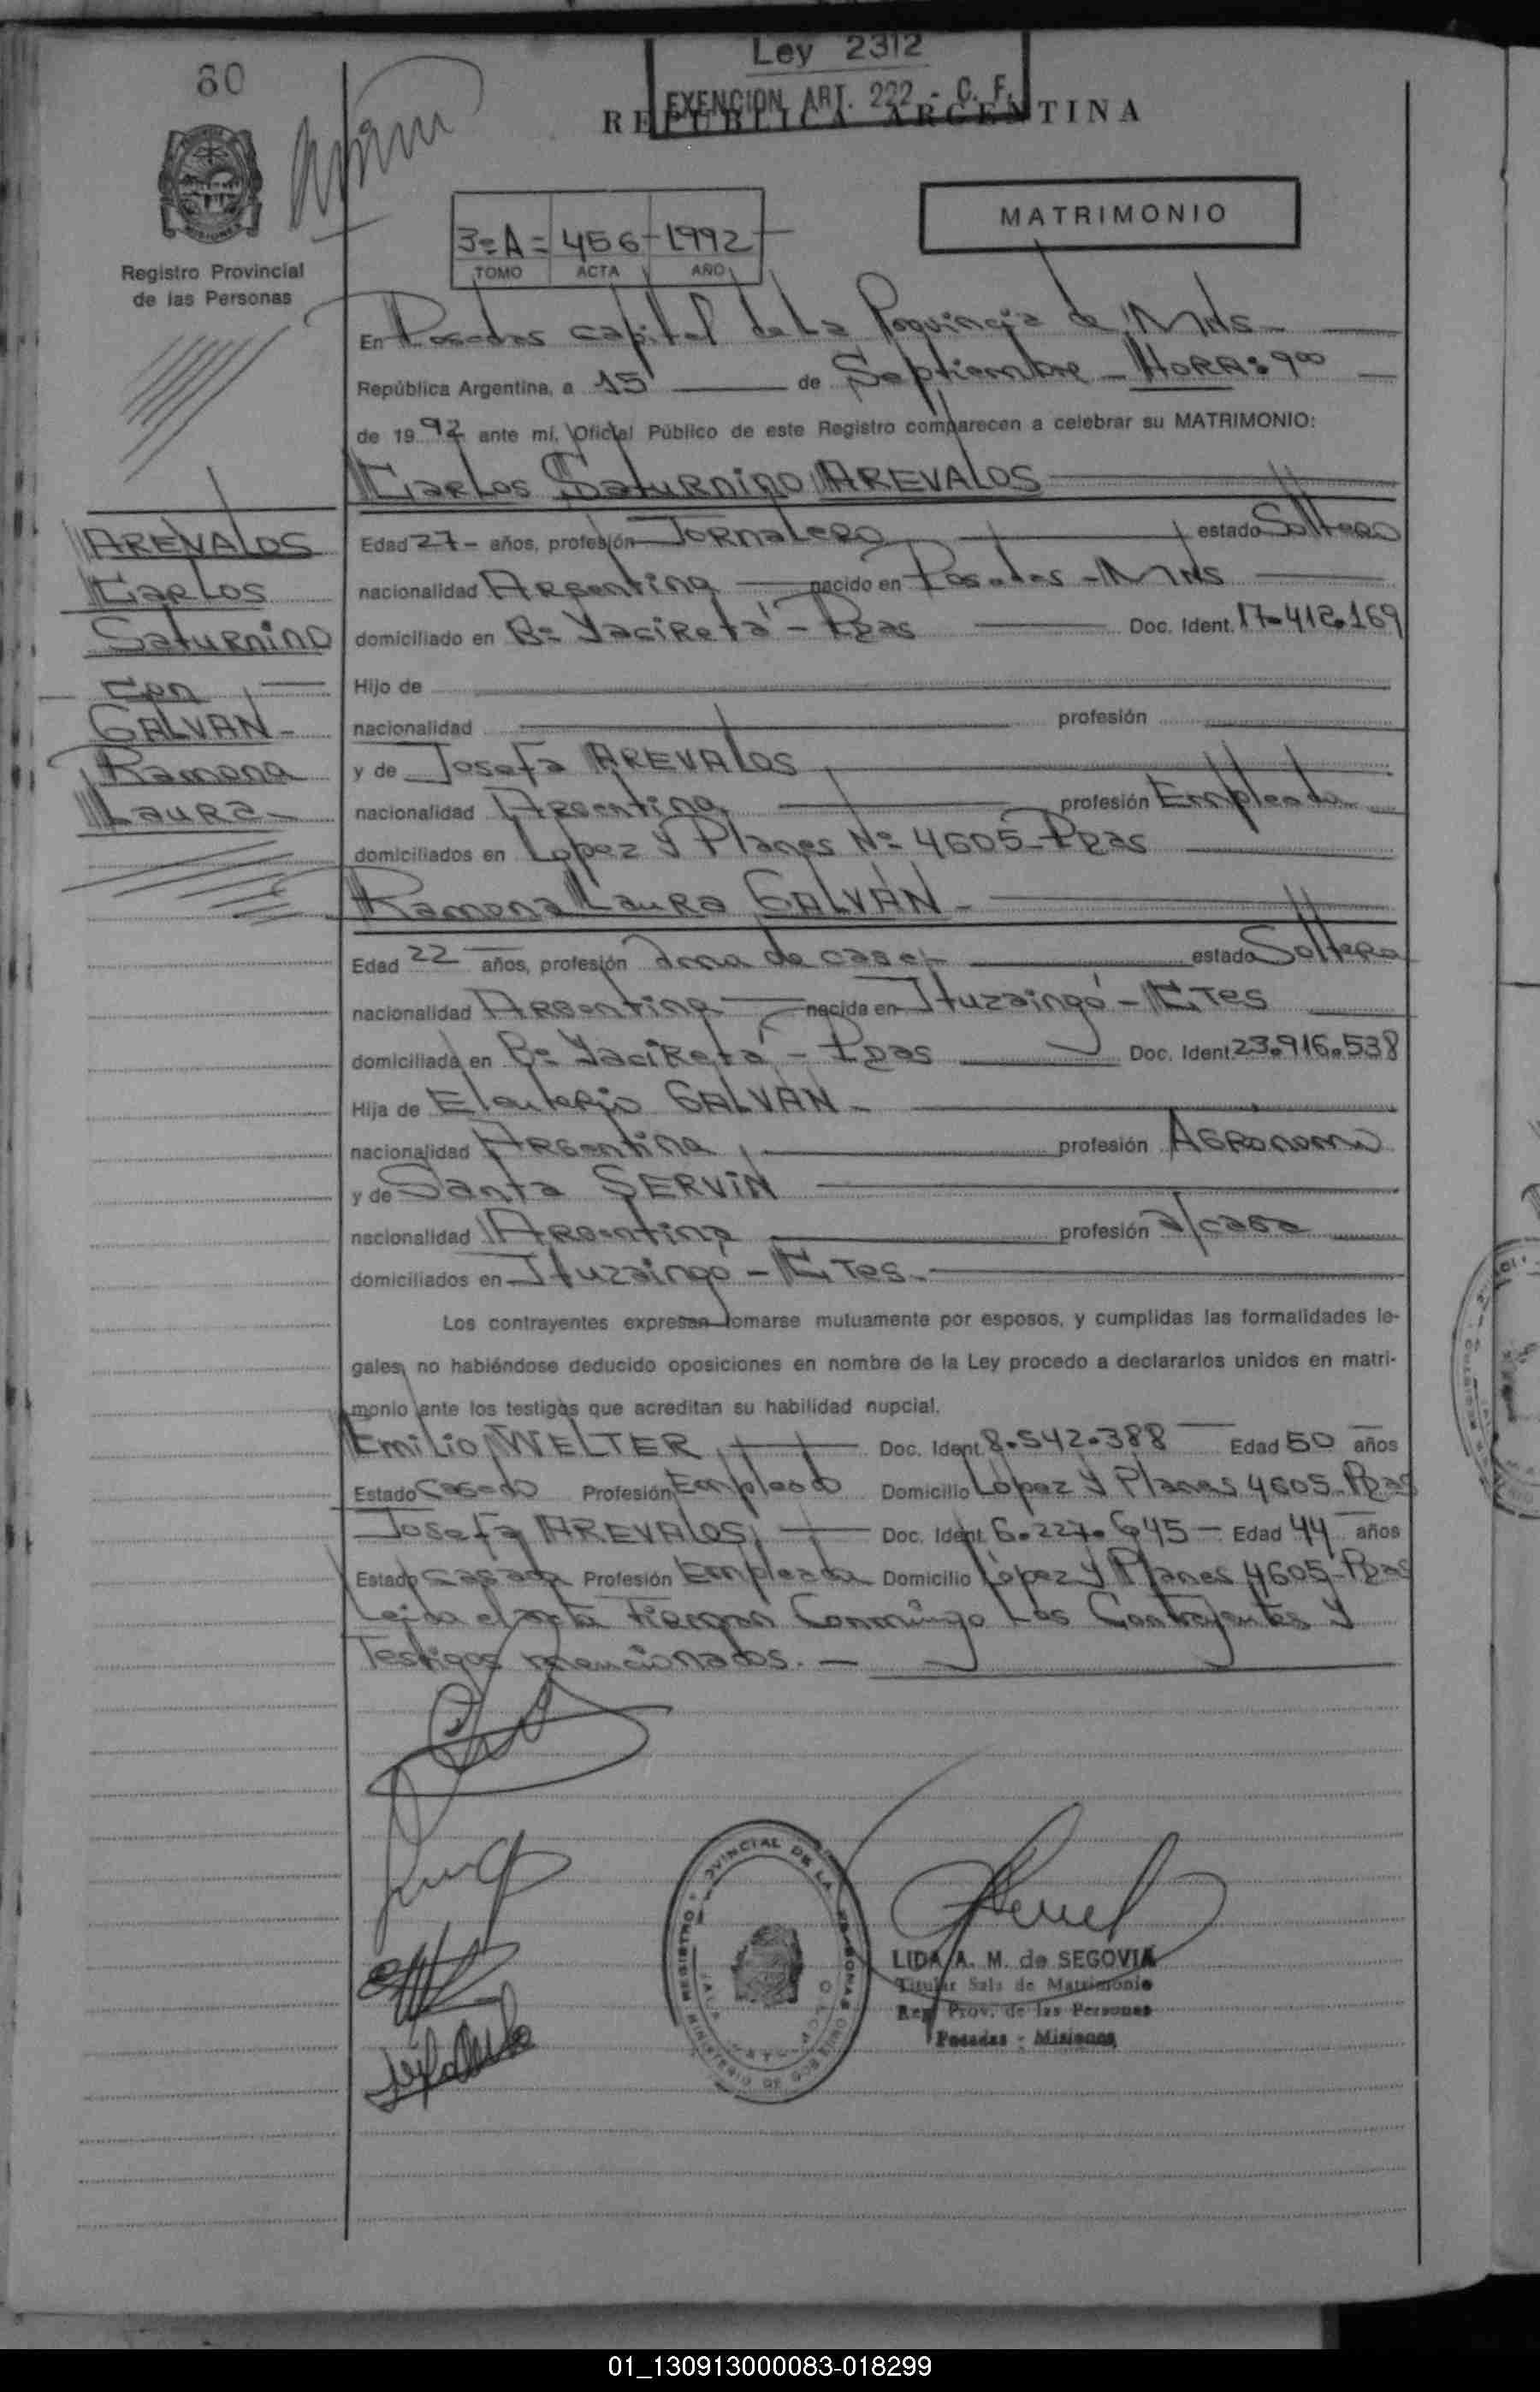 60
Ley 2312
EXENCION ART. 222 - C. F.
REPUBLICA ARGENTINA
MISIONES
Registro Provincial
de las Personas
MATRIMONIO
3=A= 456-1992
TOMO ACTA AÑO
En Posadas capital de La Provincia de Mnes
República Argentina, a 15 de Septiembre - HORA: 9 00
de 1992 ante mí, Oficial Público de este Registro comparecen a celebrar su MATRIMONIO:
Carlos Saturnino AREVALOS
AREVALOS
Carlos
Saturnino
con
GALVAN-
Ramona
Laura-
Edad 27- años, profesión Jornalero estado Soltero
nacionalidad Argentina nacido en Posadas - Mnes
domiciliado en B= Yacireta - Pdas Doc. Ident. 17.412.169
Hijo de
nacionalidad profesión
y de Josefa AREVALOS
nacionalidad Argentina profesión Empleada
domiciliados en Lopez y Planes N= 4605-Pdas
Ramona Laura GALVAN-
Edad 22 años, profesión ama de casa estado Soltera
nacionalidad Argentina nacida en Ituzaingó - Ctes
domiciliada en B= Yaciretá - Pdas Doc. Ident 23.916.538
Hija de Eleuterio GALVAN-
nacionalidad Argentina profesión Agronomo
y de Santa SERVIN
nacionalidad Argentina profesión a/casa
domiciliados en Ituzaingo - Ctes.
Los contrayentes expresan tomarse mutuamente por esposos, y cumplidas las formalidades le-
gales, no habiéndose deducido oposiciones en nombre de la Ley procedo a declararlos unidos en matri-
monio ante los testigos que acreditan su habilidad nupcial.
Emilio WELTER Doc. Ident. 8.542.388 Edad 50 años
Estado Casado Profesión Empleado Domicilio López y Planes 4605-Pdas
Josefa AREVALOS Doc. Ident. 6.227.645 - Edad 44 años
Estado casada Profesión Empleada Domicilio López y Planes 4605-Pdas
Leida el acta Firman Conmigo Los Contrayentes y
Testigos mencionados. -
REGISTRO PROVINCIAL DE LAS PERSONAS
MINISTERIO DE GOBIERNO
LIDA A. M. de SEGOVIA
Titular Sala de Matrimonio
Reg. Prov. de las Personas
Posadas - Misiones
01_130913000083-018299